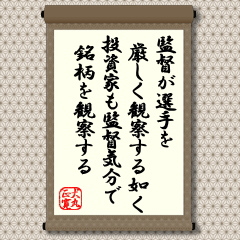 監督が選手を
厳しく観察する如く
投資家も監督気分で
銘柄を観察する